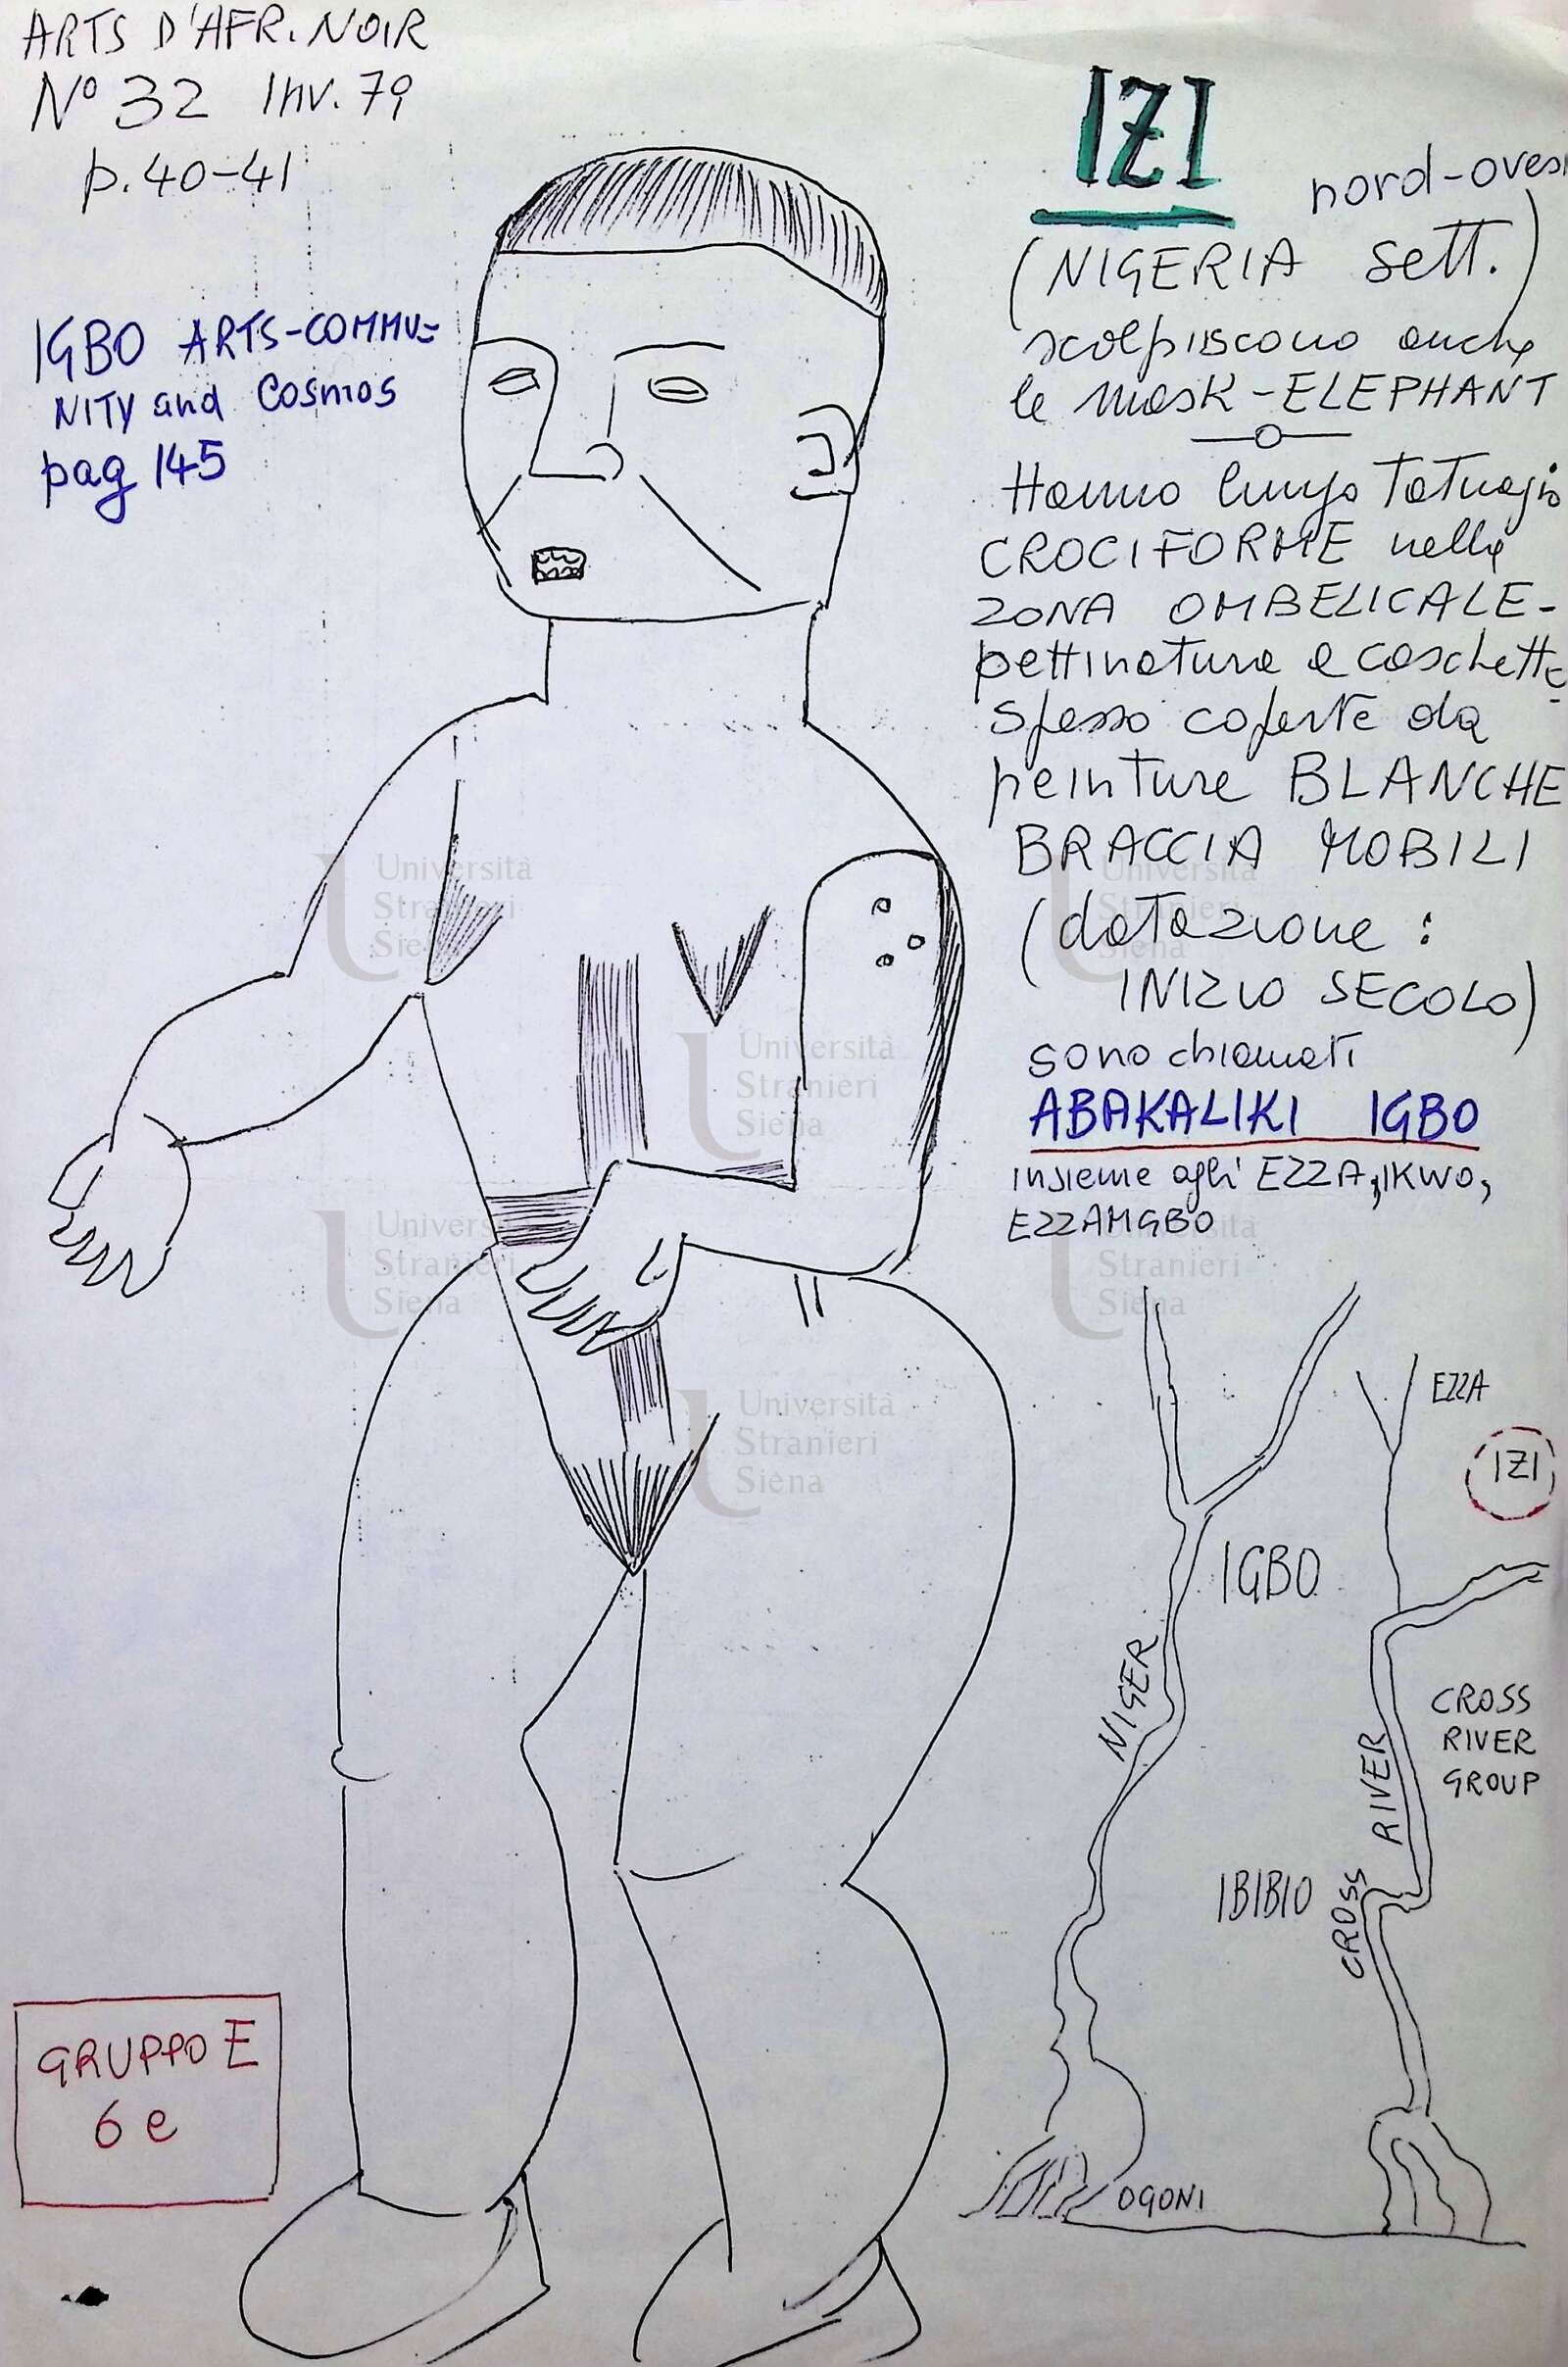 ARTS D'AFR. NOIR
N° 32 Inv. 79
p. 40-41
IGBO ARTS-COMMU=
NITY and COSMOS
pag 145
IZI
nord-ovest
(NIGERIA sett.)
scolpiscono anche
le mask-ELEPHANT
Hanno lungo tatuagio
CROCIFORME nella
ZONA OMBELICALE-
pettinatura a caschette
spesso coperte da
peinture BLANCHE
BRACCIA MOBILI
(datazione :
INIZIO SECOLO)
sono chiamati
ABAKALIKI IGBO
insieme agli EZZA, IKWO,
EZZAMGBO
EZZA
IZI
IGBO
NIGER
CROSS
RIVER
GROUP
CROSS RIVER
IBIBIO
OGONI
GRUPPO E
6 e
Università
Stranieri
Siena
Università
Stranieri
Siena
Università
Stranieri
Siena
Università
Stranieri
Siena
Università
Stranieri
Siena
Università
Stranieri
Siena